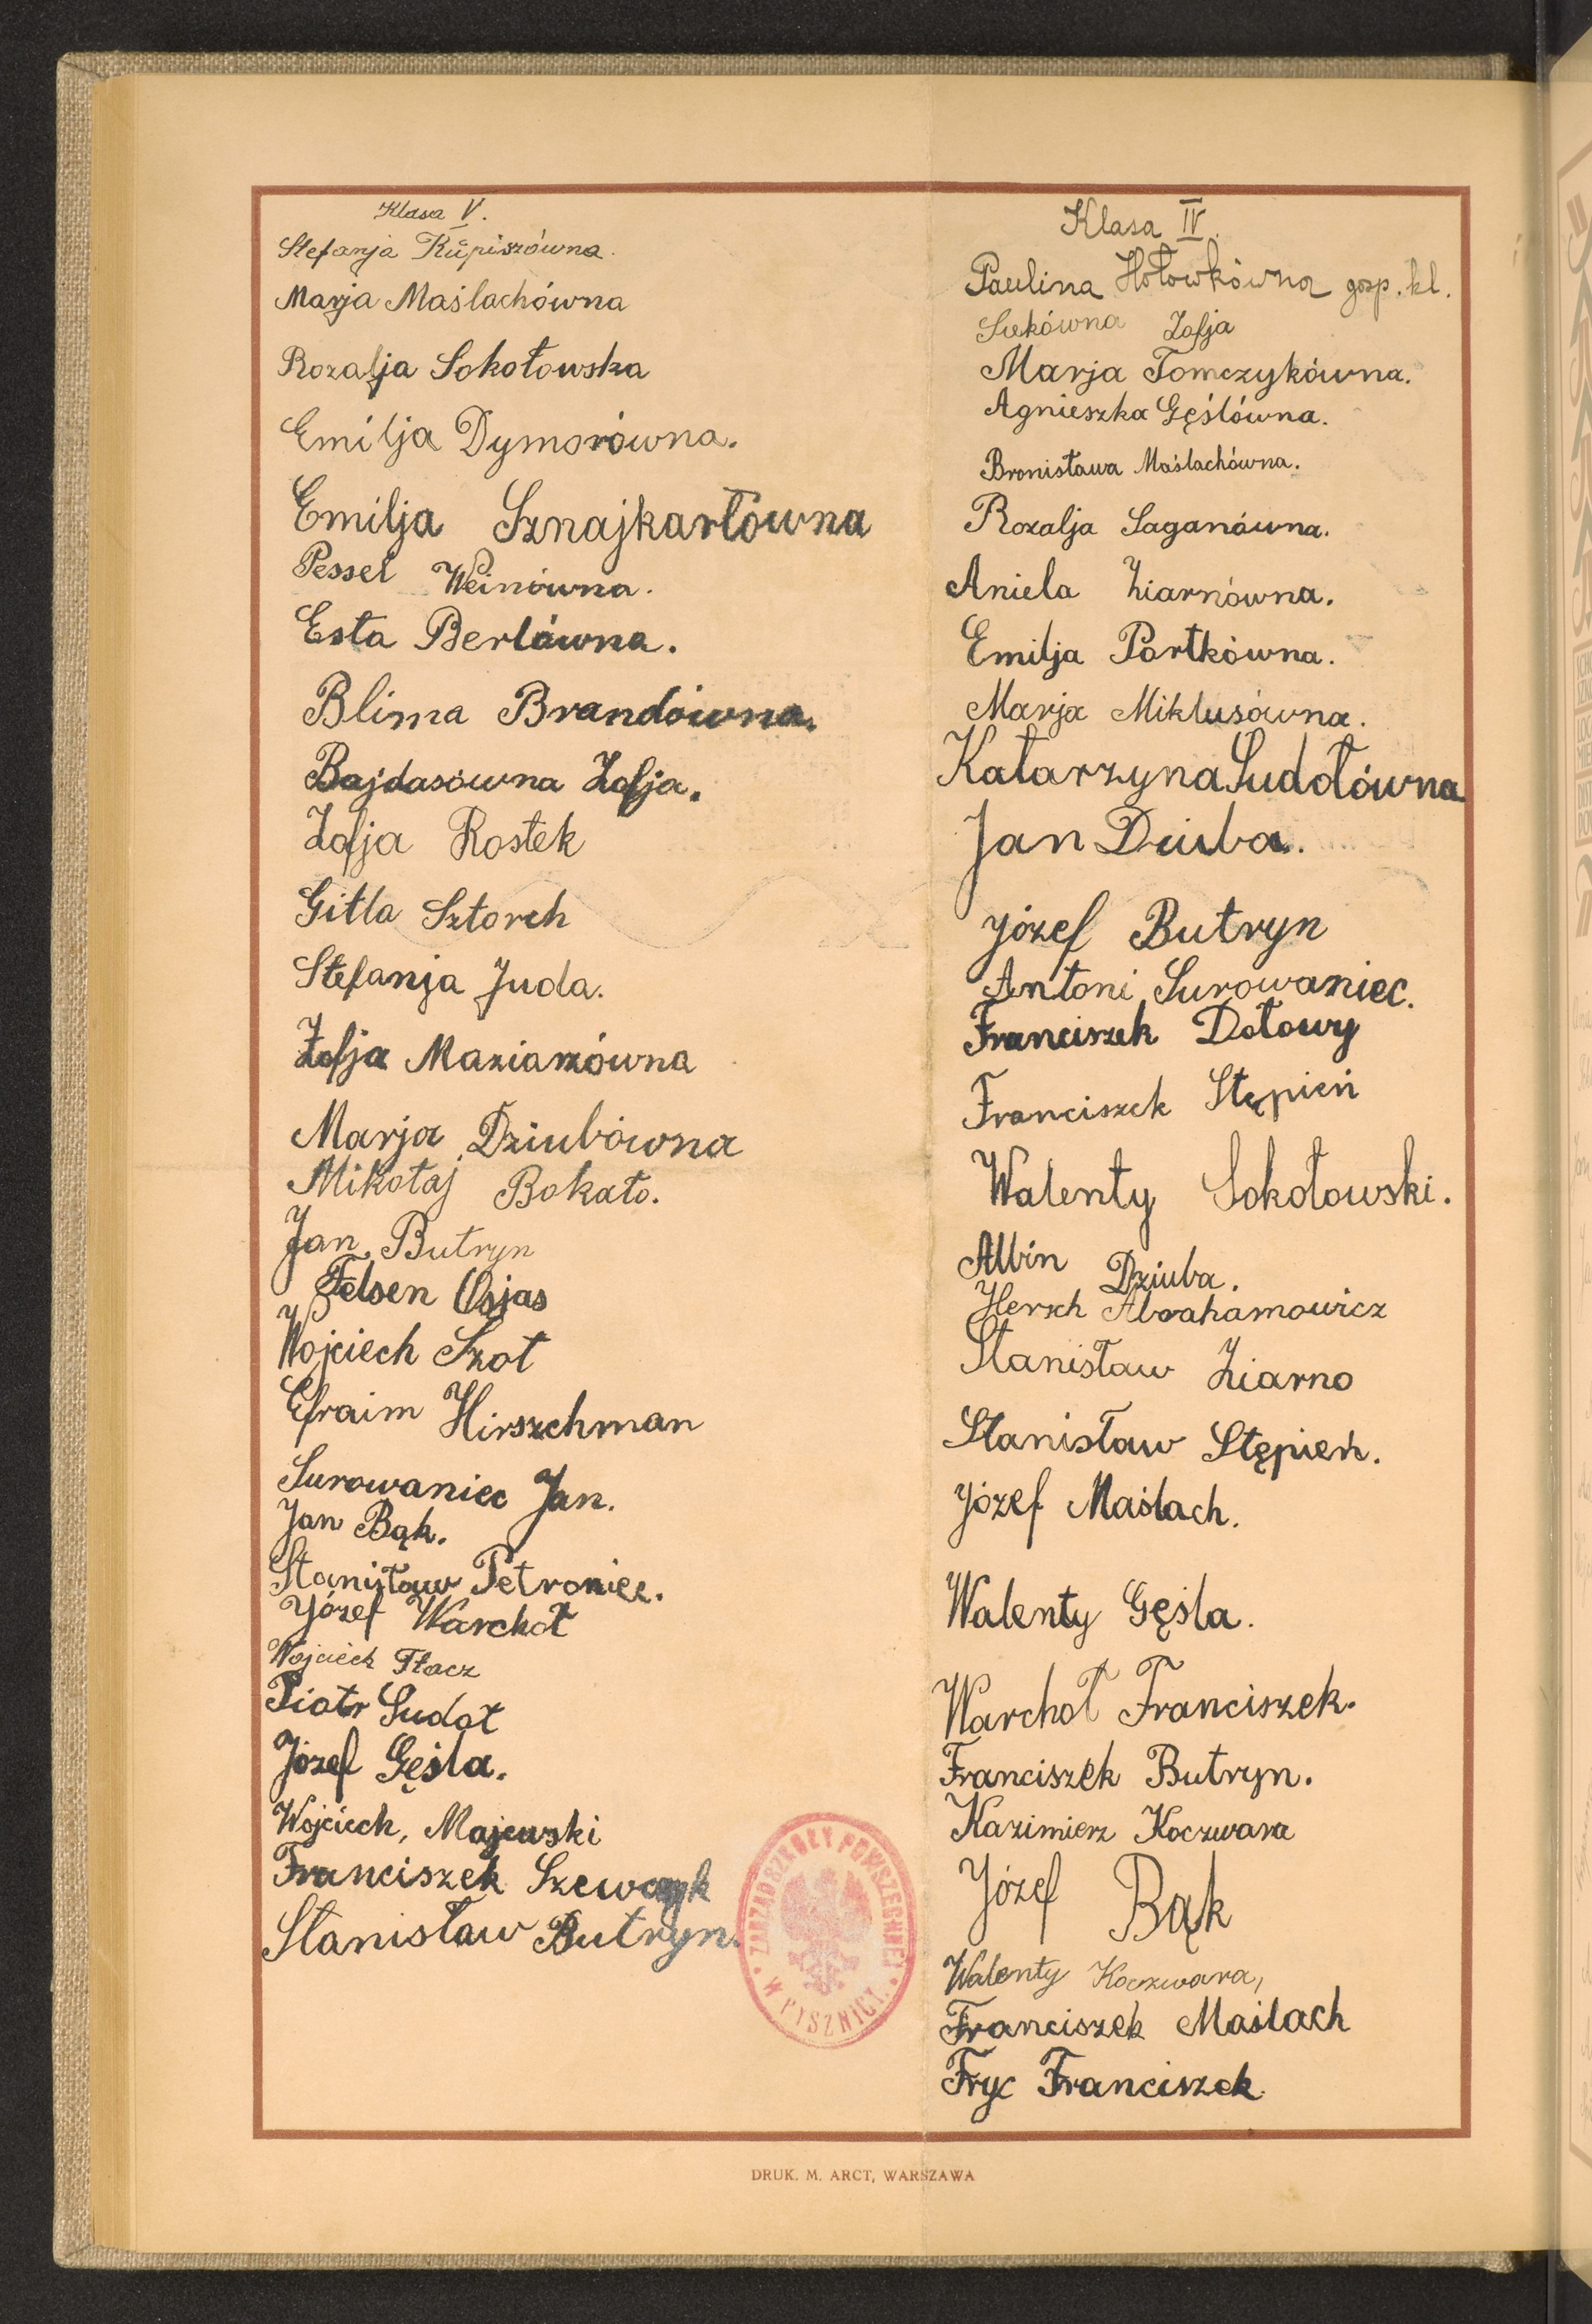 Klasa V.
Stefanja Kupiszówna.
Marja Maślachówna
Rozalja Sokołowska
Emilja Dymorówna.
Emilja Sznajkartówna
Pessel Weinówna.
Esta Berlówna.
Blima Brandówna.
Bajdasówna Zofja.
Zofja Rostek
Gitla Sztorch
Stefanja Juda.
Zofja Maziarzówna
Marja Dziubówna
Mikołaj Bokato.
Jan Butryn
Felsen Osjas
Wojciech Szot
Efraim Hirszchman
Surowaniec Jan.
Jan Bąk.
Stanisław Petroniec.
Józef Warchoł
Wojciech Tłacz
Piotr Sudoł
Józef Gęśla.
Wojciech, Majewski
Franciszek Szewczyk
Stanisław Butryn.
ZARZĄD SZKOŁY POWSZECHNEJ
W PYSZNICY.
Klasa IV.
Paulina Hołowkówna gosp. kl.
Siekówna Zofja
Marja Tomczykówna.
Agnieszka Gęślówna.
Bronisława Maślachówna.
Rozalja Saganówna.
Aniela Ziarnówna.
Emilja Portkówna.
Marja Miklusówna.
Katarzyna Sudołówna
Jan Dziuba.
Józef Butryn
Antoni Surowaniec.
Franciszek Dołowy
Franciszek Stępień
Walenty Sokołowski.
Albin Dziuba.
Hersch Abrahamowicz
Stanisław Ziarno
Stanisław Stępień.
Józef Maślach.
Walenty Gęśla.
Warchoł Franciszek.
Franciszek Butryn.
Kazimierz Koczwara
Józef Bąk
Walenty Koczwara,
Franciszek Maślach
Fryc Franciszek.
DRUK. M. ARCT, WARSZAWA